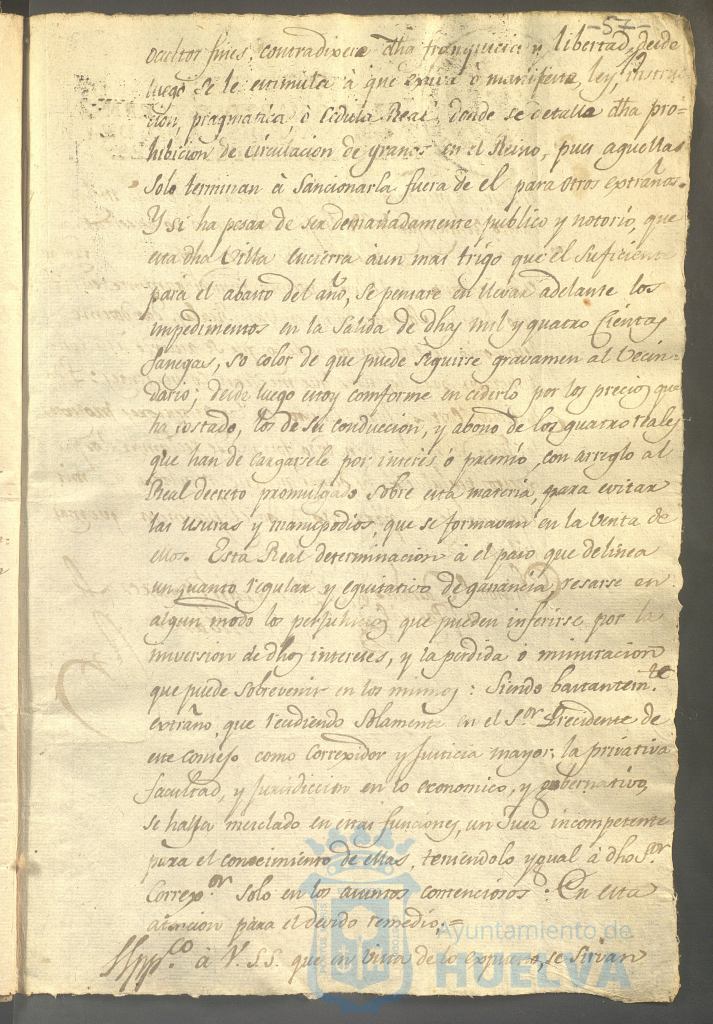 -57-
ocultos fines, contradixere dha franquicia y libertad, desde
luego se le estimula à que exiva ò manifieste ley, Instruc
cion, pragmatica, ò Cedula Real, donde se detalla dha pro=
hibicion de circulacion de granos en el Reino, pues aquellas
solo terminan à Sancionarla fuera de el para otros extraños.
Y si ha pesar de ser demasiadamente público y notorio, que
esta dha Villa encierra áun mas trigo que el Suficiente
para el abasto del año, se pensare en llevar adelante los
impedimentos en la salida de dhas mil y quatro cientas
fanegas, so color de que puede seguirse gravamen al Vecin=
dario; desde luego estoy comforme en cederlo por los precios que
ha costado, los de su conduccion, y abono de los quatro reales
que han de cargarsele por interes ó premio, con arreglo al
Real decreto promulgado sobre esta materia, para evitar
las usuras y manipodios, que se formavan en la Venta de
ellos. Esta Real determinacion á el paso que delinea
un quanto regular y equitativo de ganancia resarse en
algun modo los perjuicios que pueden inferirse por la
inversion de dhos intereses, y la perdida ó minutacion
que puede sobrevenir en los mismos: Siendo bastantem.te
extraño que recidiendo Solamente en el S.or Precidente de
este Consejo como Correxidor y Justicia mayor, la privativa
facultad, y Jurisdiccion en lo economico, y gubernativo,
se halla mesclado en estas funciones, un Juez incompetente
para el conocimiento de ellas, teniendolo ygual à dho S.or
Correx.or solo en los asuntos contenciosos. En esta
atencion para el devido remedio,=
Supp.co à V.S.S. que en vista de lo expuesto, se sirvan
Ayuntamiento de
HUELVA